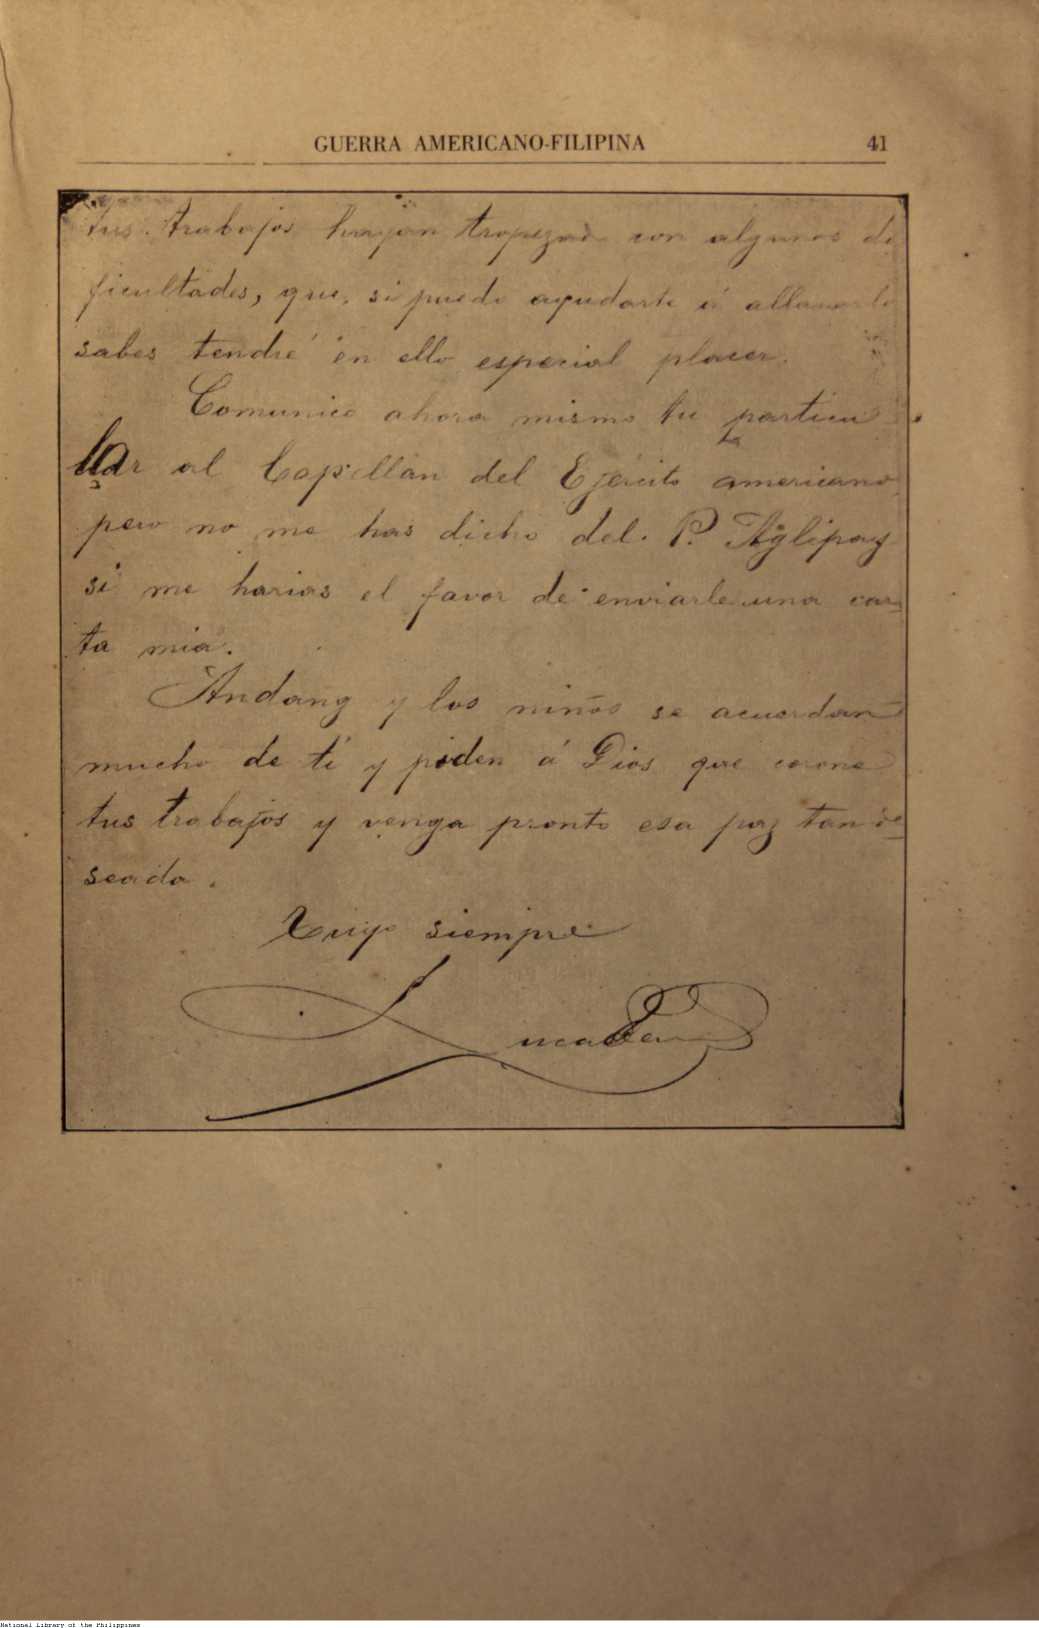 GUERRA AMERICANO-FILIPINA 41
tus trabajos hayan tropezado con algunas di
ficultades, que, si puedo ayudarte á allanarla
sabes tendré en ello especial placer.
Comunico ahora mismo tu particu
lar al Capellán del Ejército americano
pero no me has dicho del P. Aglipay
si me harias el favor de enviarle una car-
ta mia.
Andang y los niños se acuerdan
mucho de tí y piden á Dios que corone
tus trabajos y venga pronto esa paz tan de-
seada.
Tuyo siempre
National Library of the Philippines